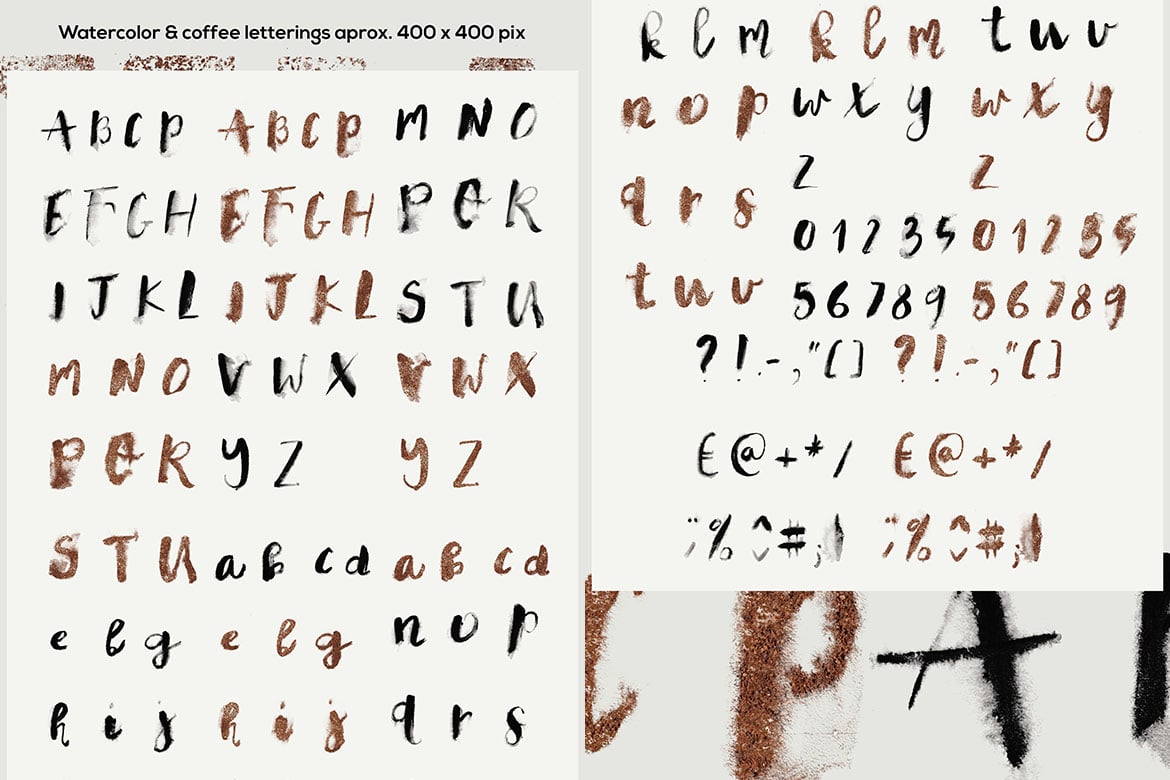 Watercolor & coffee letterings aprox. 400 x 400 pix
A B C D A B C D M N O
E F G H E F G H P Q R
I J K L I J K L S T U
M N O V W X V W X
P Q R Y Z Y Z
S T U a b c d a b c d
e f g e f g n o p
h i j h i j q r s
k l m k l m t u v
n o p w x y w x y
q r s z z
0 1 2 3 4 0 1 2 3 4
t u v 5 6 7 8 9 5 6 7 8 9
? ! . - , " ( ) ? ! . - , " ( )
€ @ + * / € @ + * /
% # ; % # ;
p A